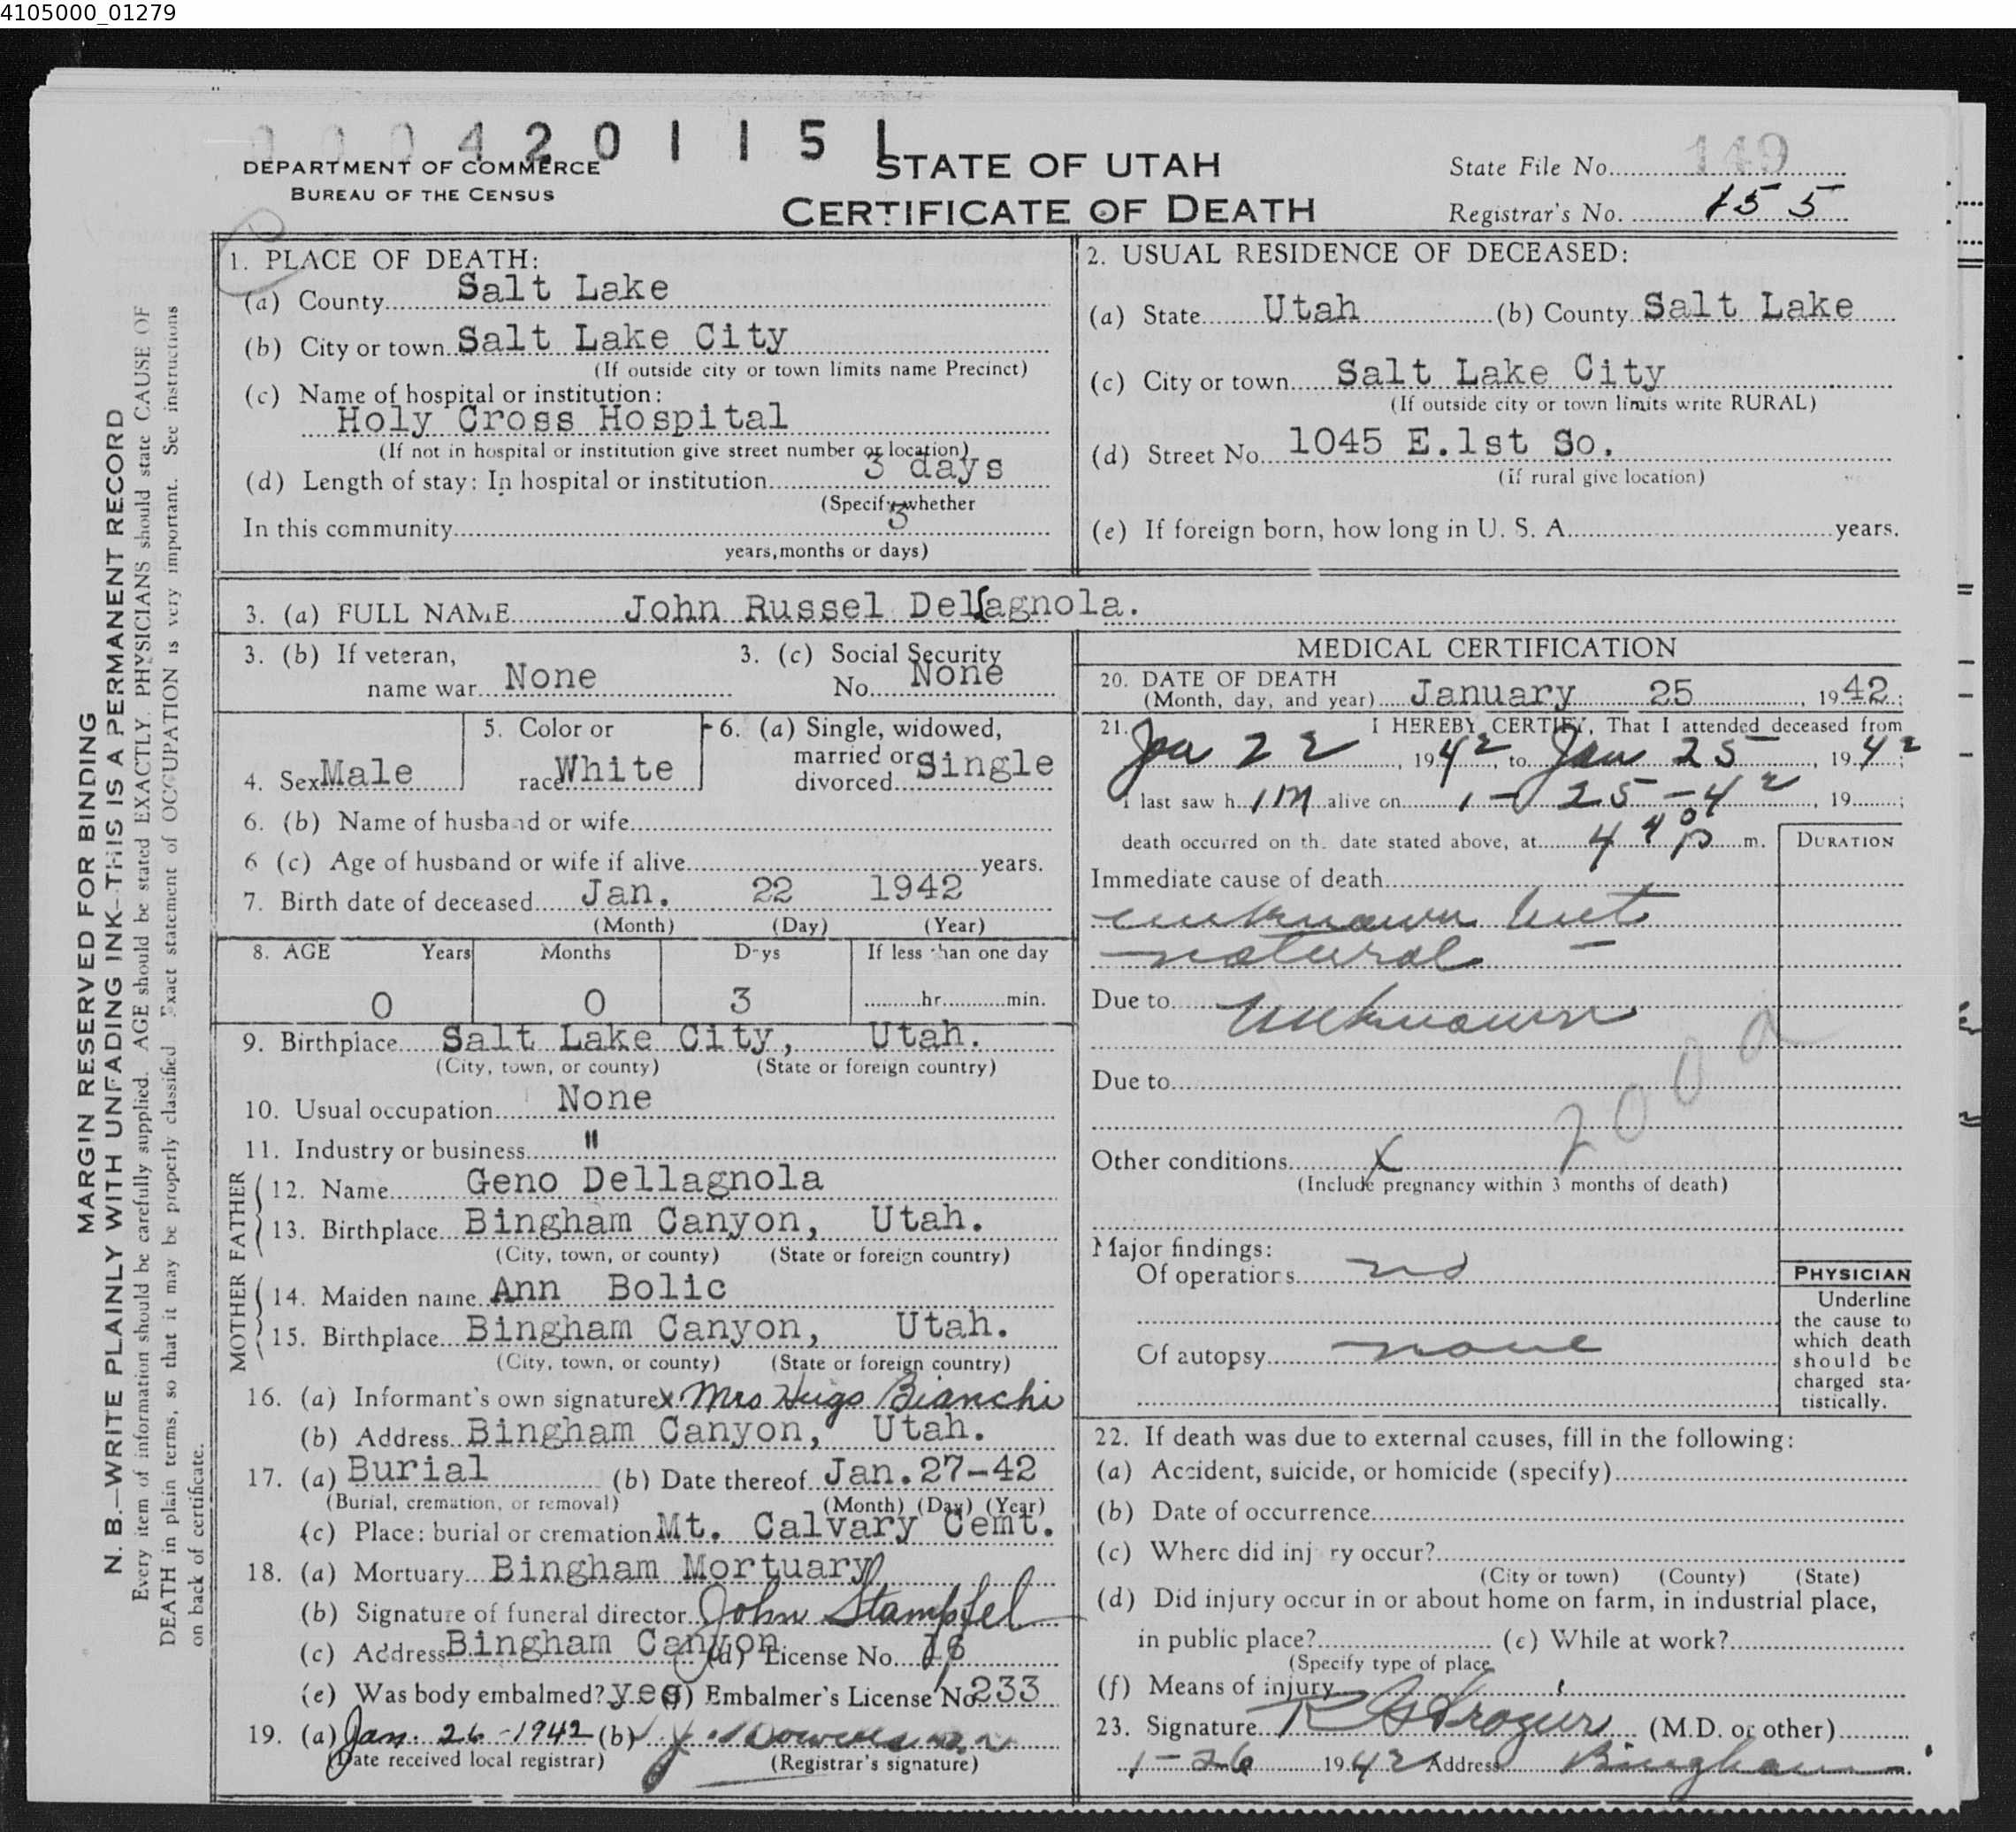 4105000_01279
0 0 0 4 2 0 1 1 5 1
DEPARTMENT OF COMMERCE
BUREAU OF THE CENSUS
STATE OF UTAH
CERTIFICATE OF DEATH
State File No. 149
Registrar's No. 155
MARGIN RESERVED FOR BINDING
N. B.—WRITE PLAINLY WITH UNFADING INK--THIS IS A PERMANENT RECORD
Every item of information should be carefully supplied. AGE should be stated EXACTLY. PHYSICIANS should state CAUSE OF
DEATH in plain terms, so that it may be properly classified. Exact statement of OCCUPATION is very important. See instructions
on back of certificate.
1. PLACE OF DEATH:
(a) County Salt Lake
(b) City or town Salt Lake City
(If outside city or town limits name Precinct)
(c) Name of hospital or institution:
Holy Cross Hospital
(If not in hospital or institution give street number or location)
(d) Length of stay: In hospital or institution 3 days
(Specify whether
In this community 3
years, months or days)
2. USUAL RESIDENCE OF DECEASED:
(a) State Utah (b) County Salt Lake
(c) City or town Salt Lake City
(If outside city or town limits write RURAL)
(d) Street No. 1045 E.1st So.
(if rural give location)
(e) If foreign born, how long in U. S. A. years.
3. (a) FULL NAME John Russel Dellagnola.
3. (b) If veteran, name war None
3. (c) Social Security No. None
4. Sex Male
5. Color or race White
6. (a) Single, widowed, married or divorced Single
6. (b) Name of husband or wife
6 (c) Age of husband or wife if alive years.
7. Birth date of deceased Jan. 22 1942
(Month) (Day) (Year)
8. AGE Years Months Days If less than one day
0 0 3 hr. min.
9. Birthplace Salt Lake City, Utah.
(City, town, or county) (State or foreign country)
10. Usual occupation None
11. Industry or business "
FATHER
12. Name Geno Dellagnola
13. Birthplace Bingham Canyon, Utah.
(City, town, or county) (State or foreign country)
MOTHER
14. Maiden name Ann Bolic
15. Birthplace Bingham Canyon, Utah.
(City, town, or county) (State or foreign country)
16. (a) Informant's own signature x Mrs Hugo Bianchi
(b) Address Bingham Canyon, Utah.
17. (a) Burial (b) Date thereof Jan.27-42
(Burial, cremation, or removal) (Month) (Day) (Year)
(c) Place: burial or cremation Mt. Calvary Cemt.
18. (a) Mortuary Bingham Mortuary
(b) Signature of funeral director John Stampfel
(c) Address Bingham Canyon (d) License No. 18
(e) Was body embalmed? yes (f) Embalmer's License No 233
19. (a) Jan. 26-1942 (b)
(Date received local registrar) (Registrar's signature)
MEDICAL CERTIFICATION
20. DATE OF DEATH
(Month, day, and year) January 25, 1942;
21. I HEREBY CERTIFY, That I attended deceased from
Jan 22, 1942, to Jan 25, 1942;
I last saw h im alive on 1-25-42, 19 ;
death occurred on the date stated above, at 4 40 p m.
DURATION
Immediate cause of death
unknown but
natural —
Due to unknown
Due to
200a
Other conditions x
(Include pregnancy within 3 months of death)
Major findings:
Of operations no
Of autopsy none
PHYSICIAN
Underline
the cause to
which death
should be
charged sta-
tistically.
22. If death was due to external causes, fill in the following:
(a) Accident, suicide, or homicide (specify)
(b) Date of occurrence
(c) Where did injury occur?
(City or town) (County) (State)
(d) Did injury occur in or about home on farm, in industrial place,
in public place? (e) While at work?
(Specify type of place
(f) Means of injury
23. Signature (M.D. or other)
1-26 1942 Address Bingham